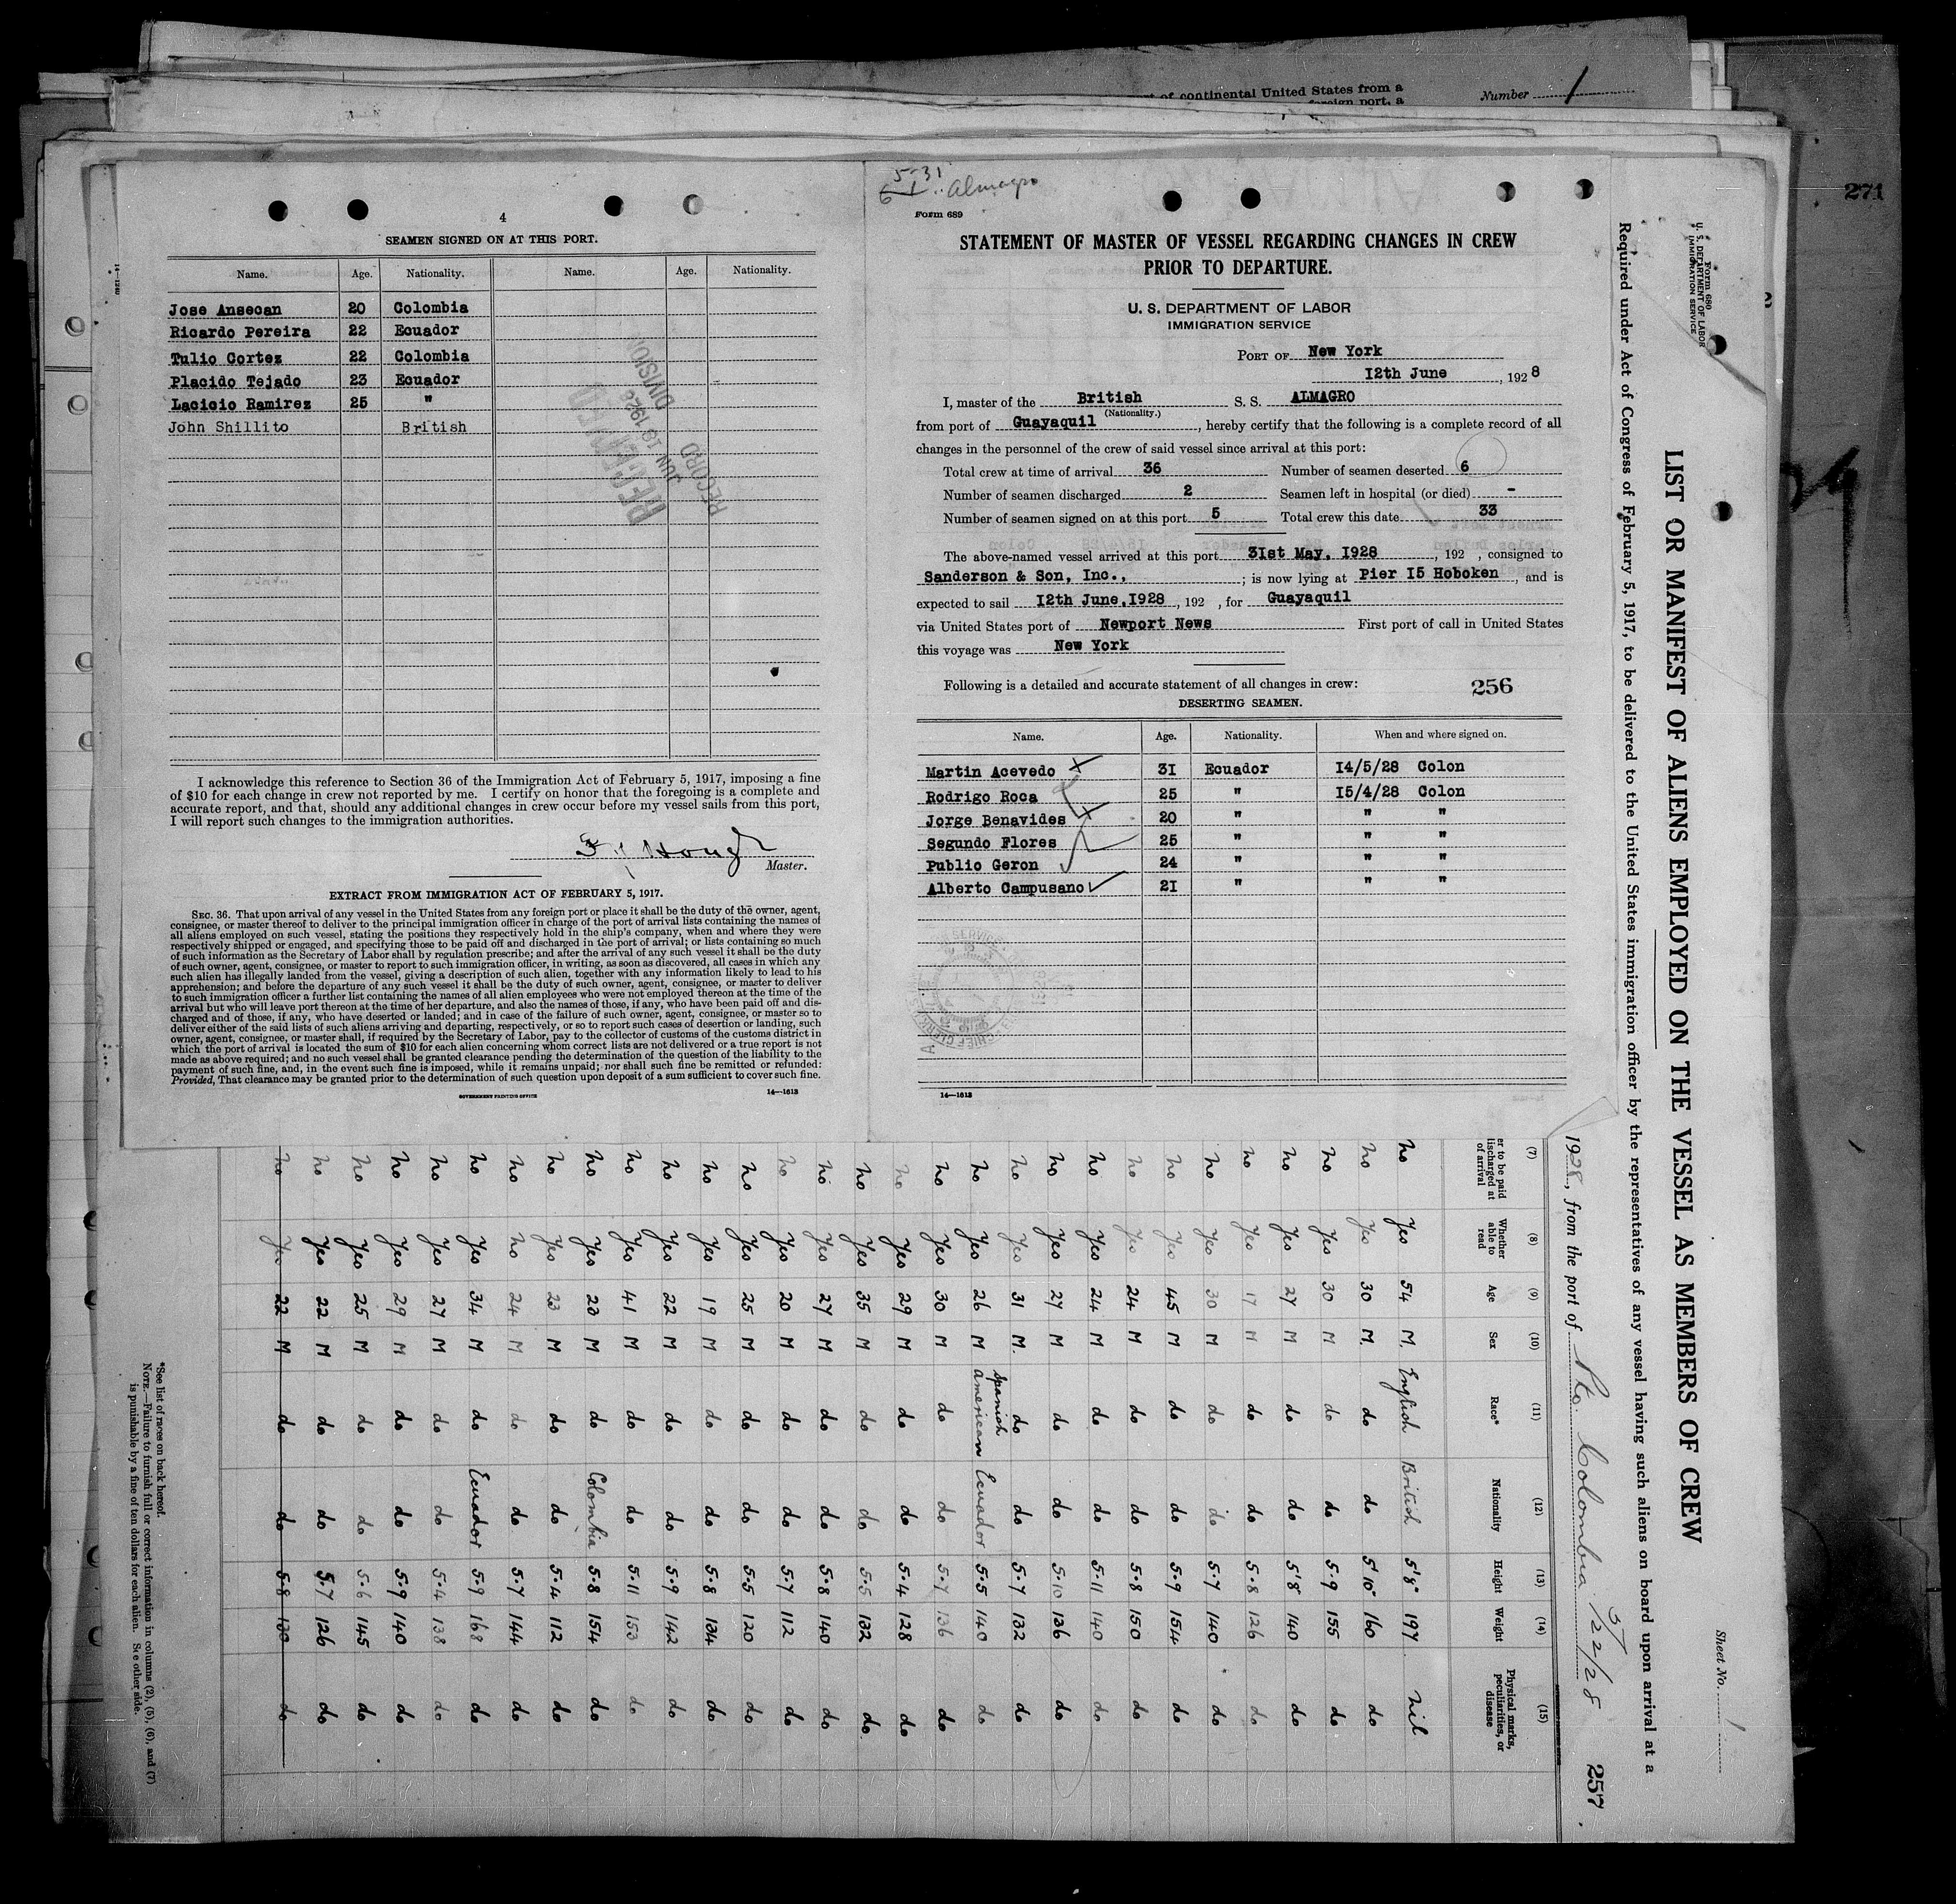 of continental United States from a
foreign port, a
Number 1
271
4
SEAMEN SIGNED ON AT THIS PORT.
Name. Age. Nationality. Name. Age. Nationality.
Jose Ansecan 20 Colombia
Ricardo Pereira 22 Ecuador
Tulio Cortez 22 Colombia
Placido Tejado 23 Ecuador
Lacicio Ramirez 25 "
John Shillito British
RECEIVED
JUN 13 1928
RECORD DIVISION
I acknowledge this reference to Section 36 of the Immigration Act of February 5, 1917, imposing a fine
of $10 for each change in crew not reported by me. I certify on honor that the foregoing is a complete and
accurate report, and that, should any additional changes in crew occur before my vessel sails from this port,
I will report such changes to the immigration authorities.
Hough
Master.
EXTRACT FROM IMMIGRATION ACT OF FEBRUARY 5, 1917.
SEC. 36. That upon arrival of any vessel in the United States from any foreign port or place it shall be the duty of the owner, agent,
consignee, or master thereof to deliver to the principal immigration officer in charge of the port of arrival lists containing the names of
all aliens employed on such vessel, stating the positions they respectively hold in the ship's company, when and where they were
respectively shipped or engaged, and specifying those to be paid off and discharged in the port of arrival; or lists containing so much
of such information as the Secretary of Labor shall by regulation prescribe; and after the arrival of any such vessel it shall be the duty
of such owner, agent, consignee, or master to report to such immigration officer, in writing, as soon as discovered, all cases in which any
such alien has illegally landed from the vessel, giving a description of such alien, together with any information likely to lead to his
apprehension; and before the departure of any such vessel it shall be the duty of such owner, agent, consignee, or master to deliver
to such immigration officer a further list containing the names of all alien employees who were not employed thereon at the time of the
arrival but who will leave port thereon at the time of her departure, and also the names of those, if any, who have been paid off and dis-
charged and of those, if any, who have deserted or landed; and in case of the failure of such owner, agent, consignee, or master so to
deliver either of the said lists of such aliens arriving and departing, respectively, or so to report such cases of desertion or landing, such
owner, agent, consignee, or master shall, if required by the Secretary of Labor, pay to the collector of customs of the customs district in
which the port of arrival is located the sum of $10 for each alien concerning whom correct lists are not delivered or a true report is not
made as above required; and no such vessel shall be granted clearance pending the determination of the question of the liability to the
payment of such fine, and, in the event such fine is imposed, while it remains unpaid; nor shall such fine be remitted or refunded:
Provided, That clearance may be granted prior to the determination of such question upon deposit of a sum sufficient to cover such fine.
GOVERNMENT PRINTING OFFICE 14—1613
5-31
6-1 Almagro
Form 689
STATEMENT OF MASTER OF VESSEL REGARDING CHANGES IN CREW
PRIOR TO DEPARTURE.
U. S. DEPARTMENT OF LABOR
IMMIGRATION SERVICE
PORT OF New York
12th June, 1928
I, master of the British S. S. ALMAGRO
(Nationality.)
from port of Guayaquil, hereby certify that the following is a complete record of all
changes in the personnel of the crew of said vessel since arrival at this port:
Total crew at time of arrival 36 Number of seamen deserted 6
Number of seamen discharged 2 Seamen left in hospital (or died) -
Number of seamen signed on at this port 5 Total crew this date 33
The above-named vessel arrived at this port 31st May, 1928, 192 , consigned to
Sanderson & Son, Inc., ; is now lying at Pier 15 Hoboken, and is
expected to sail 12th June, 1928, 192 , for Guayaquil
via United States port of Newport News First port of call in United States
this voyage was New York
Following is a detailed and accurate statement of all changes in crew: 256
DESERTING SEAMEN.
Name. Age. Nationality. When and where signed on.
Martin Acevedo 31 Ecuador 14/5/28 Colon
Rodrigo Roca 25 " 15/4/28 Colon
Jorge Benavides 20 " " "
Segundo Flores 25 " " "
Publio Geron 24 " " "
Alberto Campusano 21 " " "
14—1613
Form 680
U. S. DEPARTMENT OF LABOR
IMMIGRATION SERVICE
Sheet No. 1
LIST OR MANIFEST OF ALIENS EMPLOYED ON THE VESSEL AS MEMBERS OF CREW
Required under Act of Congress of February 5, 1917, to be delivered to the United States immigration officer by the representatives of any vessel having such aliens on board upon arrival at a
1928, from the port of Pto. Colombia 5/22/28
257
(7) (8) (9) (10) (11) (12) (13) (14) (15)
er to be paid discharged at of arrival Whether able to read Age Sex Race* Nationality Height Weight Physical marks, peculiarities, or disease
no Yes 54 M. English British 5'8" 197 nil
no Yes 30 M. do do 5'10" 160 do
no Yes 30 M do do 5.9 155 do
no Yes 27 M do do 5'8" 140 do
no Yes 17 M do do 5.8 126 do
no Yes 30 M do do 5.7 140 do
no Yes 45 M do do 5.9 154 do
no Yes 24 M do do 5.8 150 do
no Yes 24 M do do 5.11 140 do
no Yes 27 M do do 5.10 136 do
no Yes 31 M. do do 5.7 132 do
no Yes 26 M Spanish american Ecuador 5.5 140 do
no Yes 30 M do do 5.7 136 do
no Yes 29 M do do 5.4 128 do
no Yes 35 M do do 5.5 132 do
no Yes 27 M do do 5.8 140 do
no Yes 20 M do do 5.7 112 do
no Yes 25 M do do 5.5 120 do
no Yes 19 M do do 5.8 134 do
no Yes 22 M do do 5.9 142 do
no Yes 41 M do do 5.11 153 do
no Yes 20 M do Colombia 5.8 154 do
no Yes 23 M do do 5.4 112 do
no no 24 M do do 5.7 144 do
no Yes 34 M do Ecuador 5.9 168 do
no Yes 27 M do do 5.4 138 do
no Yes 29 M do do 5.9 140 do
no Yes 25 M do do 5.6 145 do
no Yes 22 M do do 5.7 126 do
no Yes 22 M do do 5.8 130 do
*See list of races on back hereof.
NOTE.—Failure to furnish full or correct information in columns (2), (5), (6), and (7)
is punishable by a fine of ten dollars for each alien. See other side.
14—1240